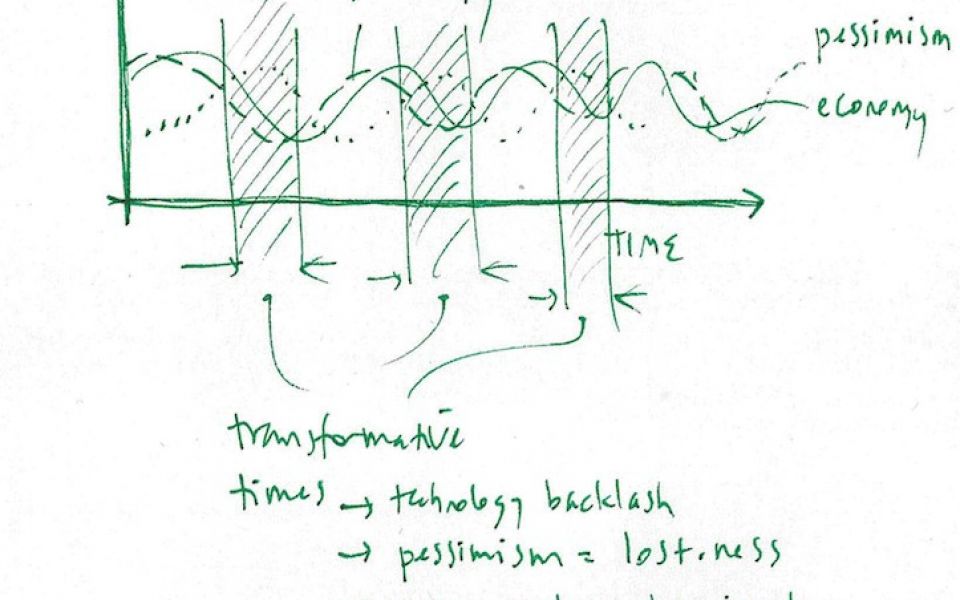 pessimism
economy
TIME
transformative
times → tehnology backlash
→ pessimism = lost.ness